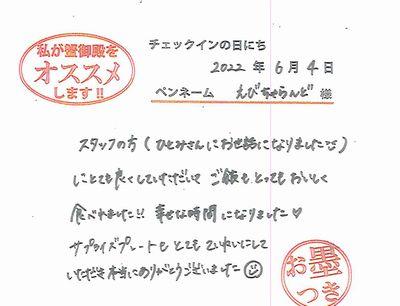 私が蟹御殿を
オススメ
します!!
チェックインの日にち
2022 年 6 月 4 日
ペンネーム えびちゃらんど 様
スタッフの方(ひとみさんにお世話になりました)
にとても良くしていただいて ご飯もとってもおいしく
食べれました!! 幸せな時間になりました♡
サプライズプレートもとてもていねいにして
いただき本当にありがとうございました☺
お墨つき